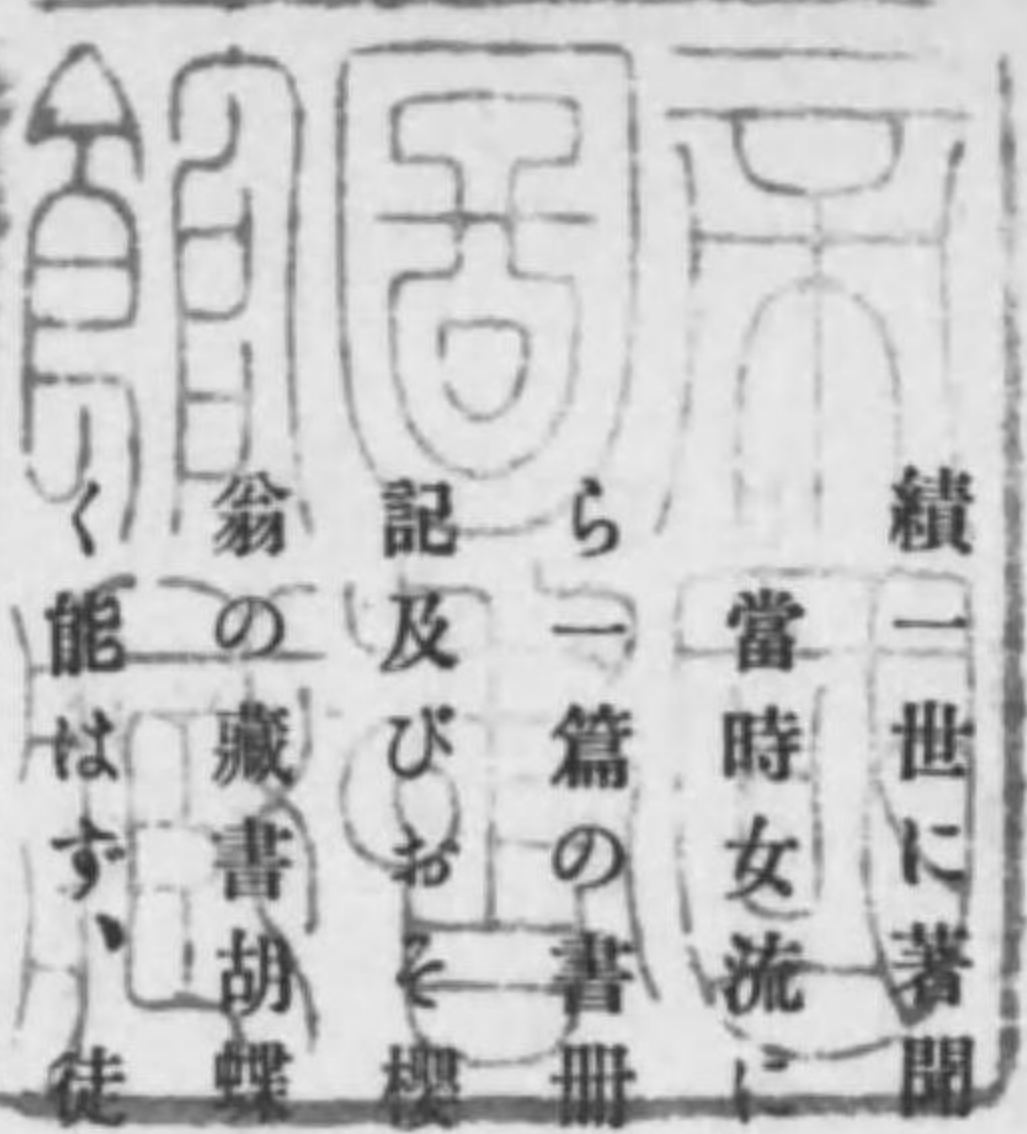 績一世に著聞
當時女流に
ら一篇の書冊
記及びおそ櫻
翁の藏書胡蝶
く能はず、徒
帝國
圖書
館藏